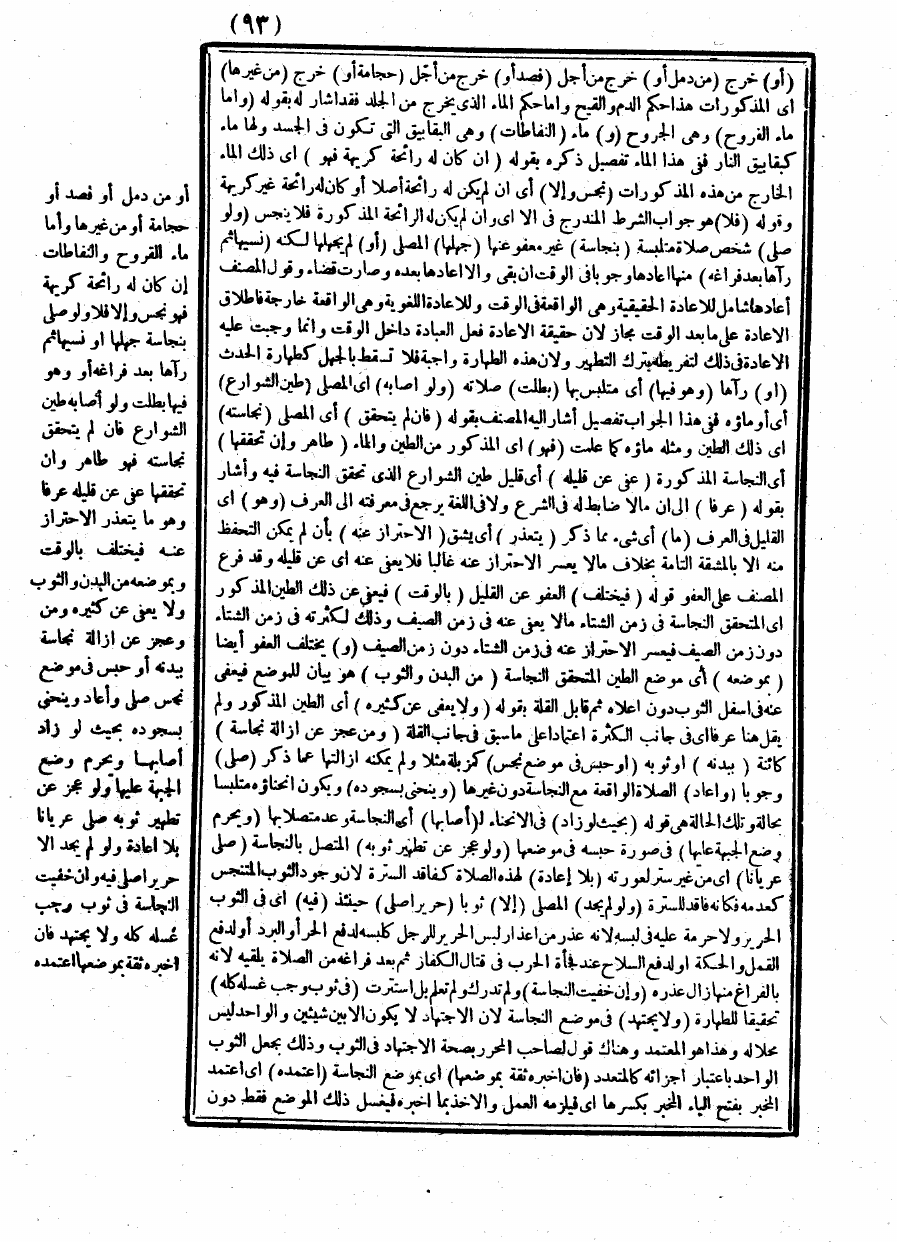 (٩٣)
(أو) خرج (من دمل أو) خرج من أجل (فصد أو) خرج من أجل (حجامة أو) خرج (من غيرها)
اى المذكورات هذا حكم الدم والقيح واما حكم الماء الذى يخرج من الجلد فقد اشار له بقوله (واما
ماء القروح) وهى الجروح (و) ماء (النفاطات) وهى البقابيق التى تكون فى الجسد ولها ماء
كبقابيق النار ففى هذا الماء تفصيل ذكره بقوله (ان كان له رائحة كريهة فهو) اى ذلك الماء
الخارج من هذه المذكورات (نجس والا) أى ان لم يكن له رائحة أصلا أو كان له رائحة غير كريهة
وقوله (فلا) هو جواب الشرط المندرج فى الا اى وان لم يكن له الرائحة المذكورة فلا ينجس (ولو
صلى) شخص صلاة متلبسة (بنجاسة) غير معفو عنها (جهلها) المصلى (أو) لم يجهلها لكنه (نسيها ثم
رآها بعد فراغه) منها اعادها وجوبا فى الوقت ان بقى والا اعادها بعده وصارت قضاء وقول المصنف
أعادها شامل للاعادة الحقيقية وهى الواقعة فى الوقت وللاعادة اللغوية وهى الواقعة خارجه فاطلاق
الاعادة على ما بعد الوقت مجاز لان حقيقة الاعادة فعل العبادة داخل الوقت وانما وجبت عليه
الاعادة فى ذلك لتفريطه بترك التطهير ولان هذه الطهارة واجبة فلا تسقط بالجهل كطهارة الحدث
(او) رآها (وهو فيها) أى متلبس بها (بطلت) صلاته (ولو اصابه) اى المصلى (طين الشوارع)
أى أو ماؤه ففى هذا الجواب تفصيل أشار اليه المصنف بقوله (فان لم يتحقق) أى المصلى (نجاسته)
اى ذلك الطين ومثله ماؤه كما علمت (فهو) اى المذكور من الطين والماء (طاهر وإن تحققها)
أى النجاسة المذكورة (عفى عن قليله) أى قليل طين الشوارع الذى تحقق النجاسة فيه وأشار
بقوله (عرفا) الى ان مالا ضابط له فى الشرع ولا فى اللغة يرجع فى معرفته الى العرف (وهو) اى
القليل فى العرف (ما) أى شىء مما ذكر (يتعذر) أى يشق (الاحتراز عنه) بأن لم يمكن التحفظ
منه الا بالمشقة التامة بخلاف مالا يعسر الاحتراز عنه غالبا فلا يعفى عنه اى عن قليله وقد فرع
المصنف على العفو قوله (فيختلف) العفو عن القليل (بالوقت) فيعفى عن ذلك الطين المذكور
اى المتحقق النجاسة فى زمن الشتاء مالا يعفى عنه فى زمن الصيف وذلك لكثرته فى زمن الشتاء
دون زمن الصيف فيعسر الاحتراز عنه فى زمن الشتاء دون زمن الصيف (و) يختلف العفو أيضا
(بموضعه) أى موضع الطين المتحقق النجاسة (من البدن والثوب) هو بيان للموضع فيعفى
عنه فى اسفل الثوب دون اعلاه ثم قابل القلة بقوله (ولا يعفى عن كثيره) أى الطين المذكور ولم
يقل هنا عرفا اى فى جانب الكثرة اعتمادا على ما سبق فى جانب القلة (ومن عجز عن ازالة نجاسة)
كائنة (ببدنه) او ثوبه (او حبس فى موضع نجس) كمزبلة مثلا ولم يمكنه ازالتها عما ذكر (صلى)
وجوبا (واعاد) الصلاة الواقعة مع النجاسة دون غيرها (وينحنى بسجوده) ويكون انحناؤه متلبسا
بحالة وتلك الحالة هى قوله (بحيث لو زاد) فى الانحناء لـ(أصابها) أى النجاسة وعد متصلا بها (ويحرم
وضع الجبهة عليها) فى صورة حبسه فى موضعها (ولو عجز عن تطهير ثوبه) المتصل بالنجاسة (صلى
عريانا) اى من غير ستر لعورته (بلا إعادة) لهذه الصلاة كفاقد السترة لان وجود الثوب المتنجس
كعدمه فكانه فاقد للسترة (ولو لم يجد) المصلى (إلا) ثوبا (حريرا صلى) حينئذ (فيه) اى فى الثوب
الحرير ولا حرمة عليه فى لبسه لانه عذر من اعذار لبس الحرير للرجل كلبسه لدفع الحر أو البرد أو لدفع
القمل والحكة او لدفع السلاح عند فجأة الحرب فى قتال الكفار ثم بعد فراغه من الصلاة يلقيه لانه
بالفراغ منها زال عذره (وإن خفيت النجاسة) ولم تدرك ولم تعلم بل استترت (فى ثوب وجب غسله كله)
تحقيقا للطهارة (ولا يجتهد) فى موضع النجاسة لان الاجتهاد لا يكون الا بين شيئين والواحد ليس
محلا له وهذا هو المعتمد وهناك قول لصاحب المحرر بصحة الاجتهاد فى الثوب وذلك بجعل الثوب
الواحد باعتبار اجزائه كالمتعدد (فان اخبره ثقة بموضعها) اى بموضع النجاسة (اعتمده) اى اعتمد
المخبر بفتح الباء المخبر بكسرها اى فيلزمه العمل والاخذ بما اخبره فيغسل ذلك الموضع فقط دون
أو من دمل أو فصد أو
حجامة أو من غيرها وأما
ماء القروح والنفاطات
إن كان له رائحة كريهة
فهو نجس وإلا فلا ولو صلى
بنجاسة جهلها او نسيها ثم
رآها بعد فراغه أو وهو
فيها بطلت ولو أصابه طين
الشوارع فان لم يتحقق
نجاسته فهو طاهر وان
تحققها عفى عن قليله عرفا
وهو ما يتعذر الاحتراز
عنه فيختلف بالوقت
وبموضعه من البدن والثوب
ولا يعفى عن كثيره ومن
وعجز عن ازالة نجاسة
ببدنه أو حبس فى موضع
نجس صلى وأعاد وينحنى
بسجوده بحيث لو زاد
أصابها ويحرم وضع
الجبهة عليها ولو عجز عن
تطهير ثوبه صلى عريانا
بلا اعادة ولو لم يجد الا
حريرا صلى فيه وان خفيت
النجاسة فى ثوب وجب
غسله كله ولا يجتهد فان
اخبره ثقة بموضعها اعتمده